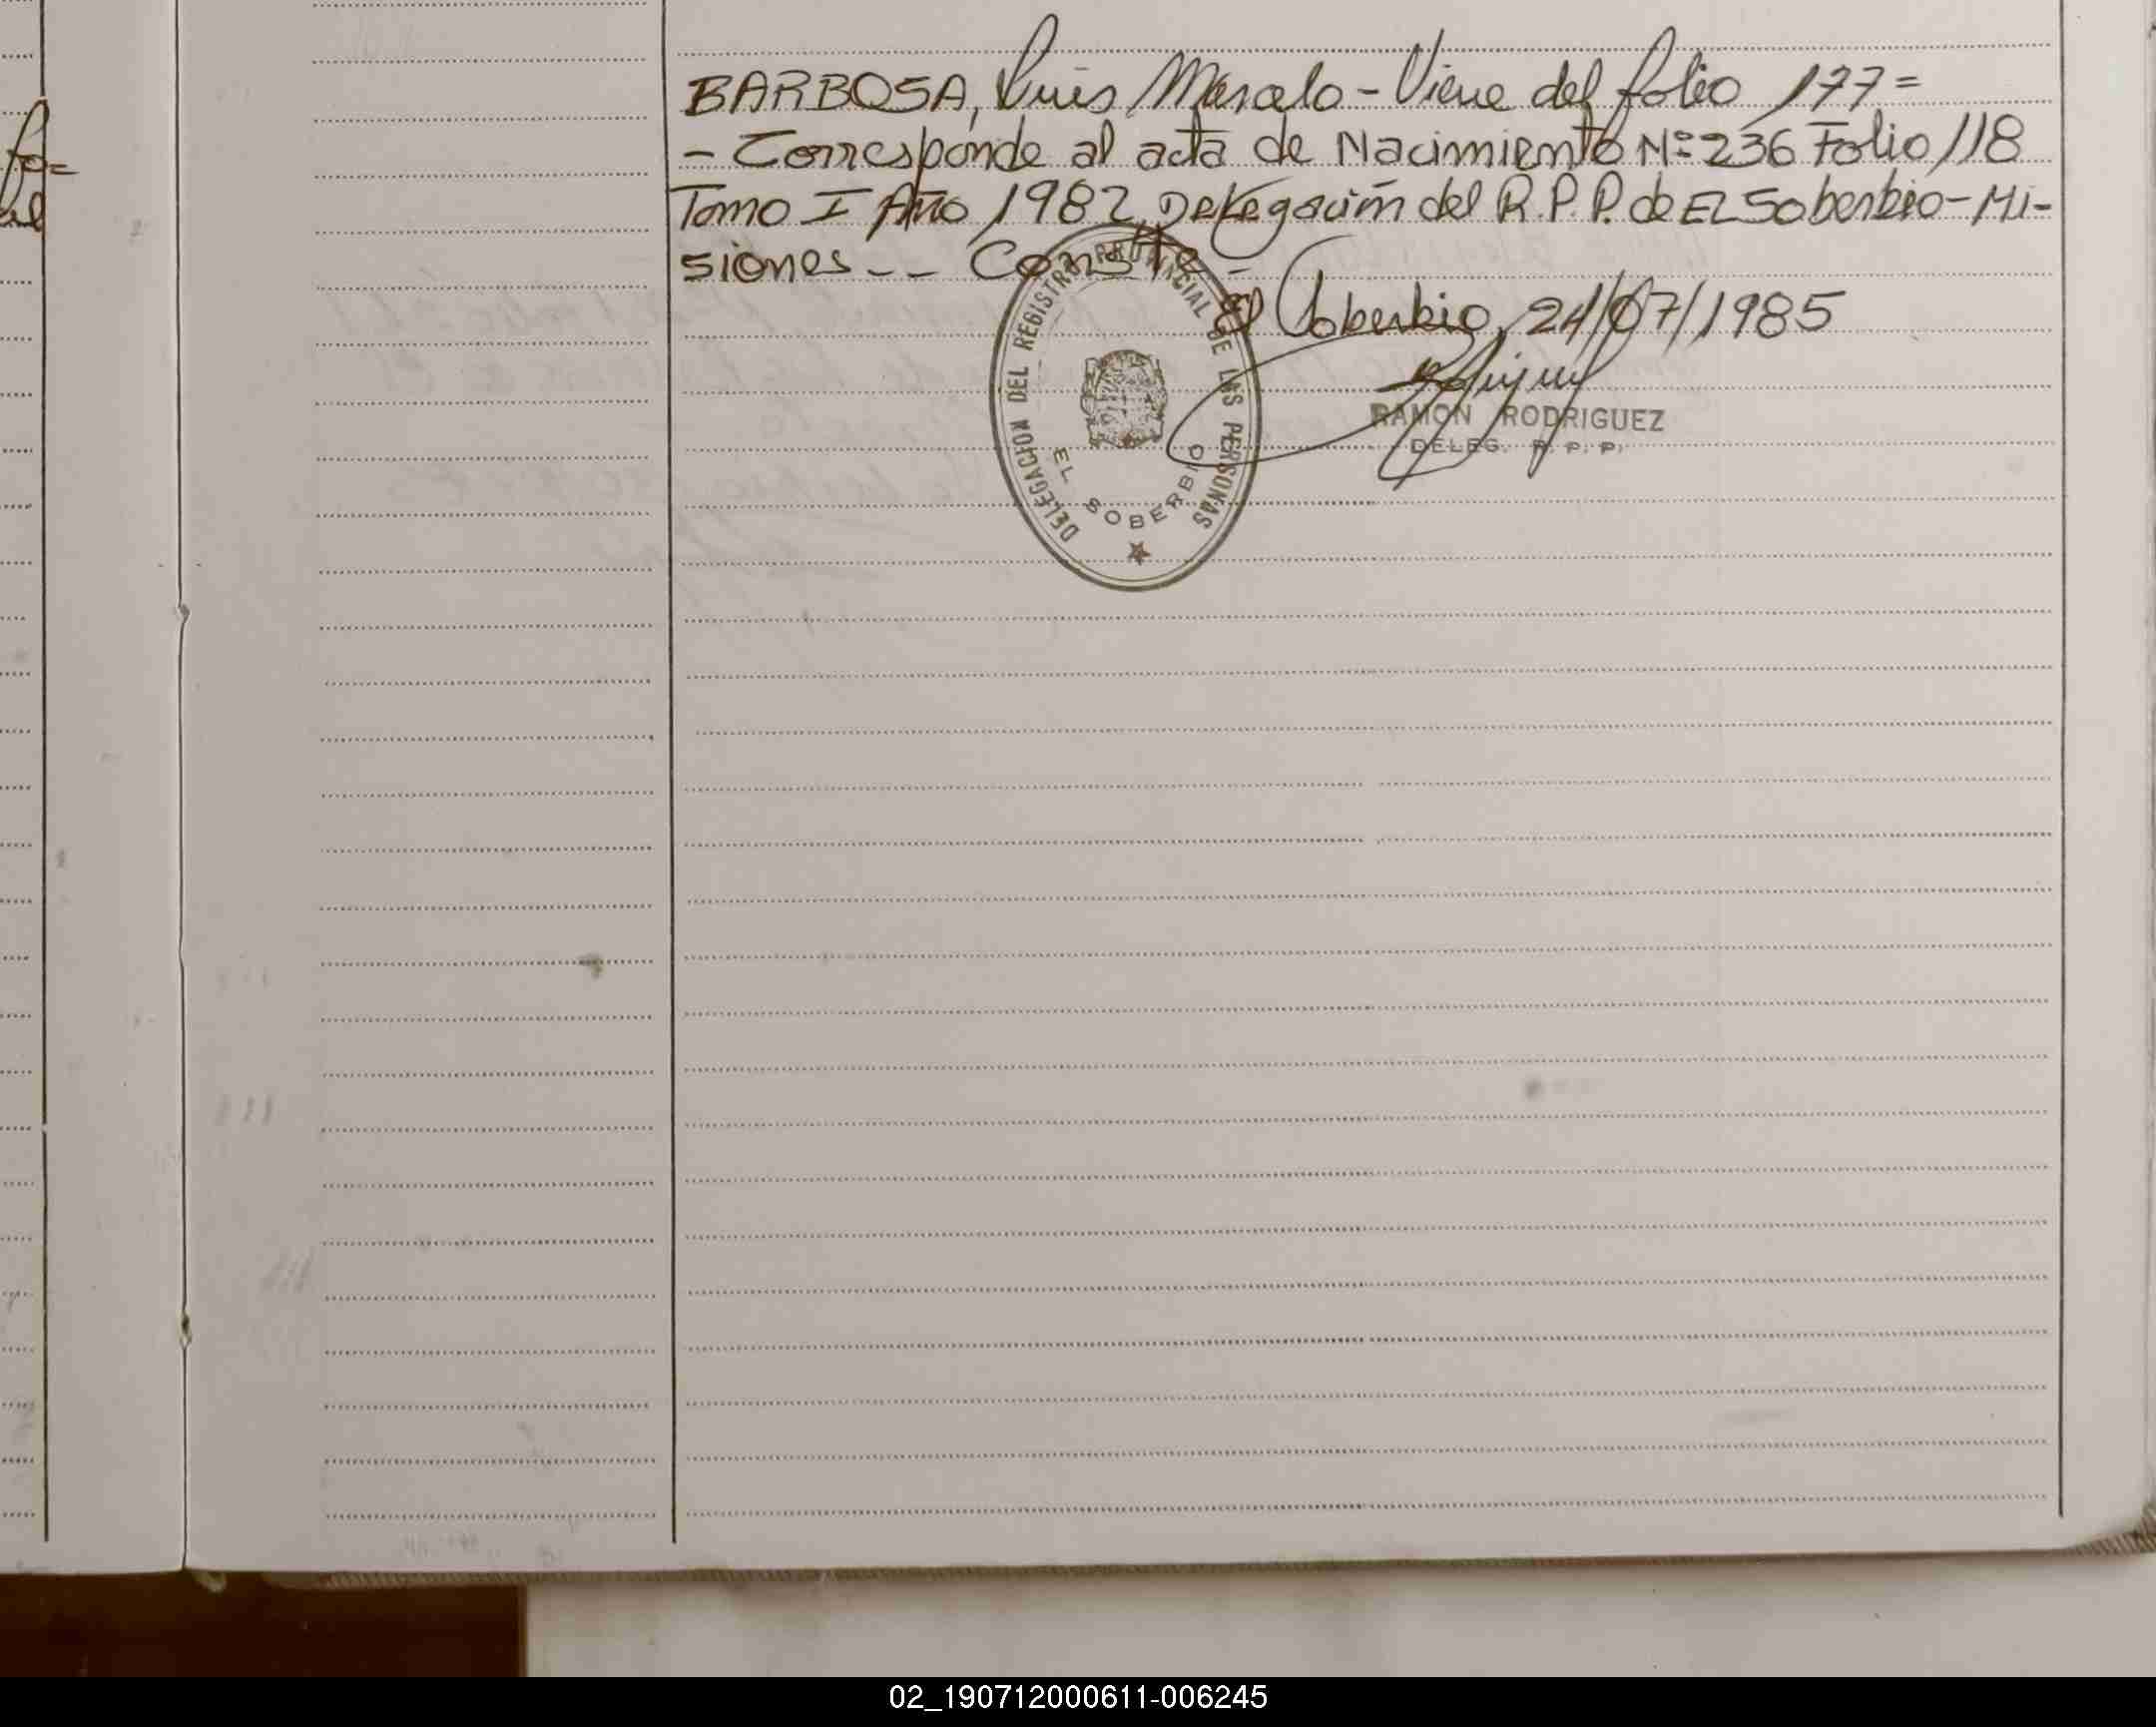 fo=
BARBOSA, Luis Marcelo - Viene del folio 177=
- Corresponde al acta de Nacimiento Nº 236 Folio 118
Tomo I Año 1982, Delegación del R.P.P. de El Soberbio - Mi-
siones -- Conste -
El Soberbio, 24/07/1985
DELEGACION DEL REGISTRO PROVINCIAL DE LAS PERSONAS
EL SOBERBIO
RAMON RODRIGUEZ
DELEG. R. P. P.
02_190712000611-006245